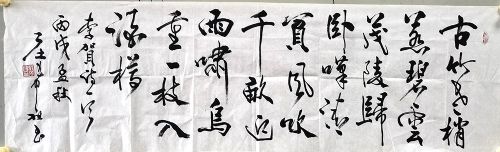 古竹老梢
惹碧雲
茂陵歸
卧嘆清
貧風吹
千畝迎
雨嘯鳥
重一枝入
酒樽
李賀詩一首
丙戌孟秋